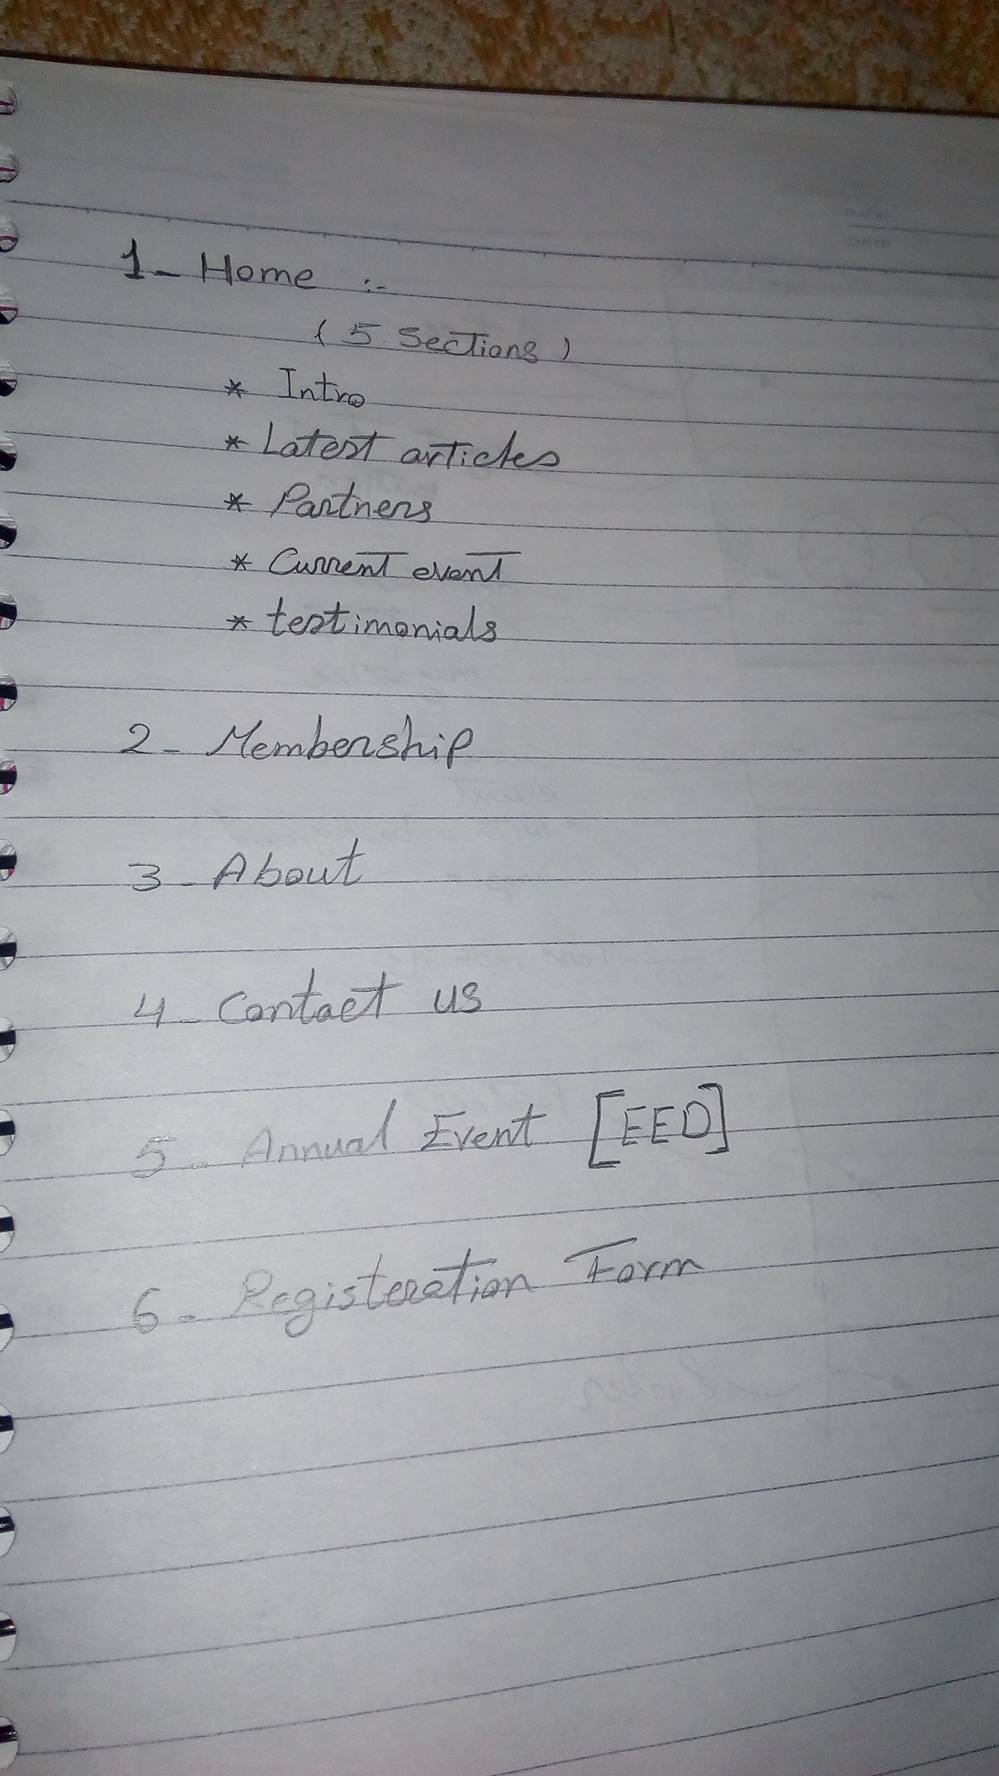 1- Home :-
( 5 Sections )
* Intro
* Latest articles
* Partners
* Current event
* testimonials
2- Membership
3- About
4- Contact us
5- Annual Event [EED]
6- Registeration Form